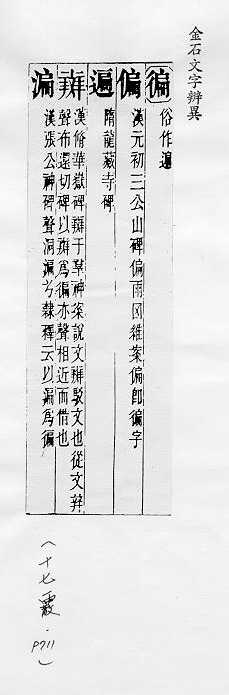 金石文字辨異
【徧】俗作遍
偏 漢元初三公山碑偏雨四維案偏即徧字
遍 隋龍藏寺碑
辬 漢脩華嶽碑辬于羣神案說文辬駁文也從文辡
聲布還切碑以辬爲徧亦聲相近而借也
㴜 漢張公神碑聲洞㴜兮隸釋云以㴜爲徧
(十七霰.P711)